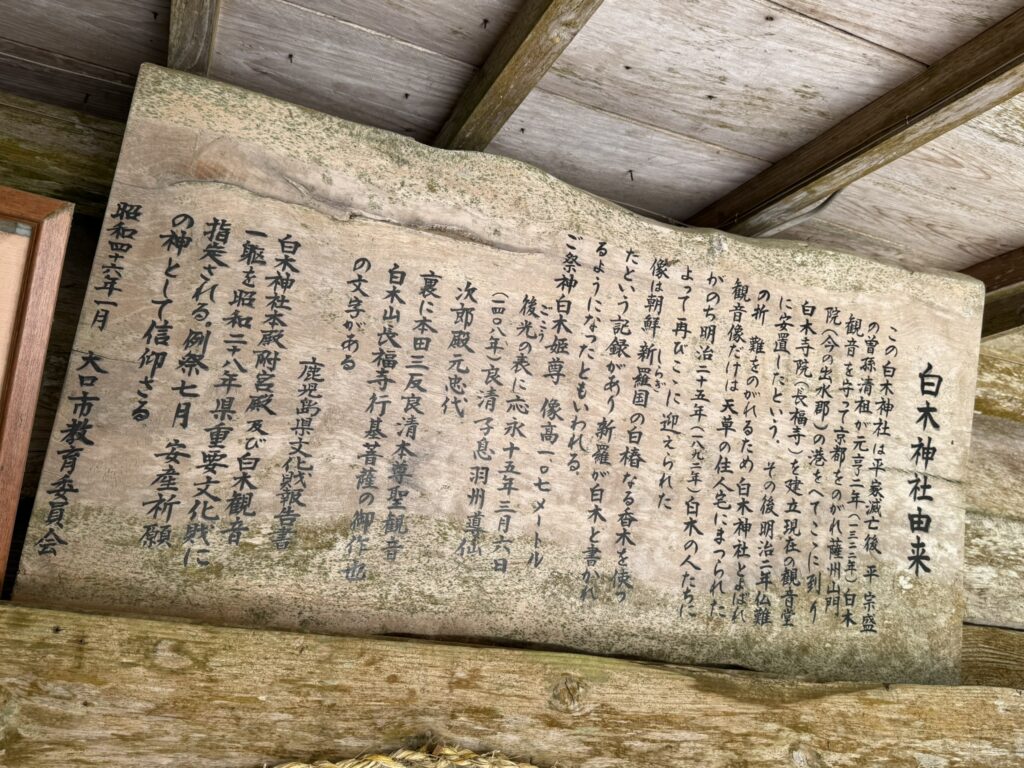 白木神社由来
この白木神社は平家滅亡後、平 宗盛
の曽孫清祖が元亨二年(一三二二年)白木
観音を守って京都をのがれ薩州山門
院(今の出水郡)の港をへてここに到り
白木寺院(長福寺)を建立現在の観音堂
に安置したという、その後明治二年仏難
の折 難をのがれるため白木神社とよばれ
観音像だけは天草の住人宅にまつられた
がのち明治二十五年(一八九二年)白木の人たちに
よって再びここに迎えられた
像は朝鮮新羅国の白椿なる香木を使っ
しらぎ
たという記録があり新羅が白木と書かれ
るようになったともいわれる。
ご祭神白木姫尊 像高一・〇七メートル
後光の表に応永十五年三月六日
ごこう
(一四〇八年)良清子息羽州導仙
次郎殿元忠代
裏に本田三反良清本尊聖観音
白木山長福寺行基菩薩の御作也
の文字がある
鹿児島県文化財報告書
白木神社本殿附宮殿及び白木観音
一軀を昭和二十八年県重要文化財に
指定される。例祭七月 安産祈願
の神として信仰さる
昭和四十六年一月
大口市教育委員会